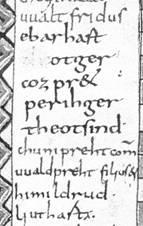 uualt fridus
ebarhaft
otiger
cozpr&
perihger
theotsind
chunpreht com
uualdpreht filius
himildrud
liuthast.